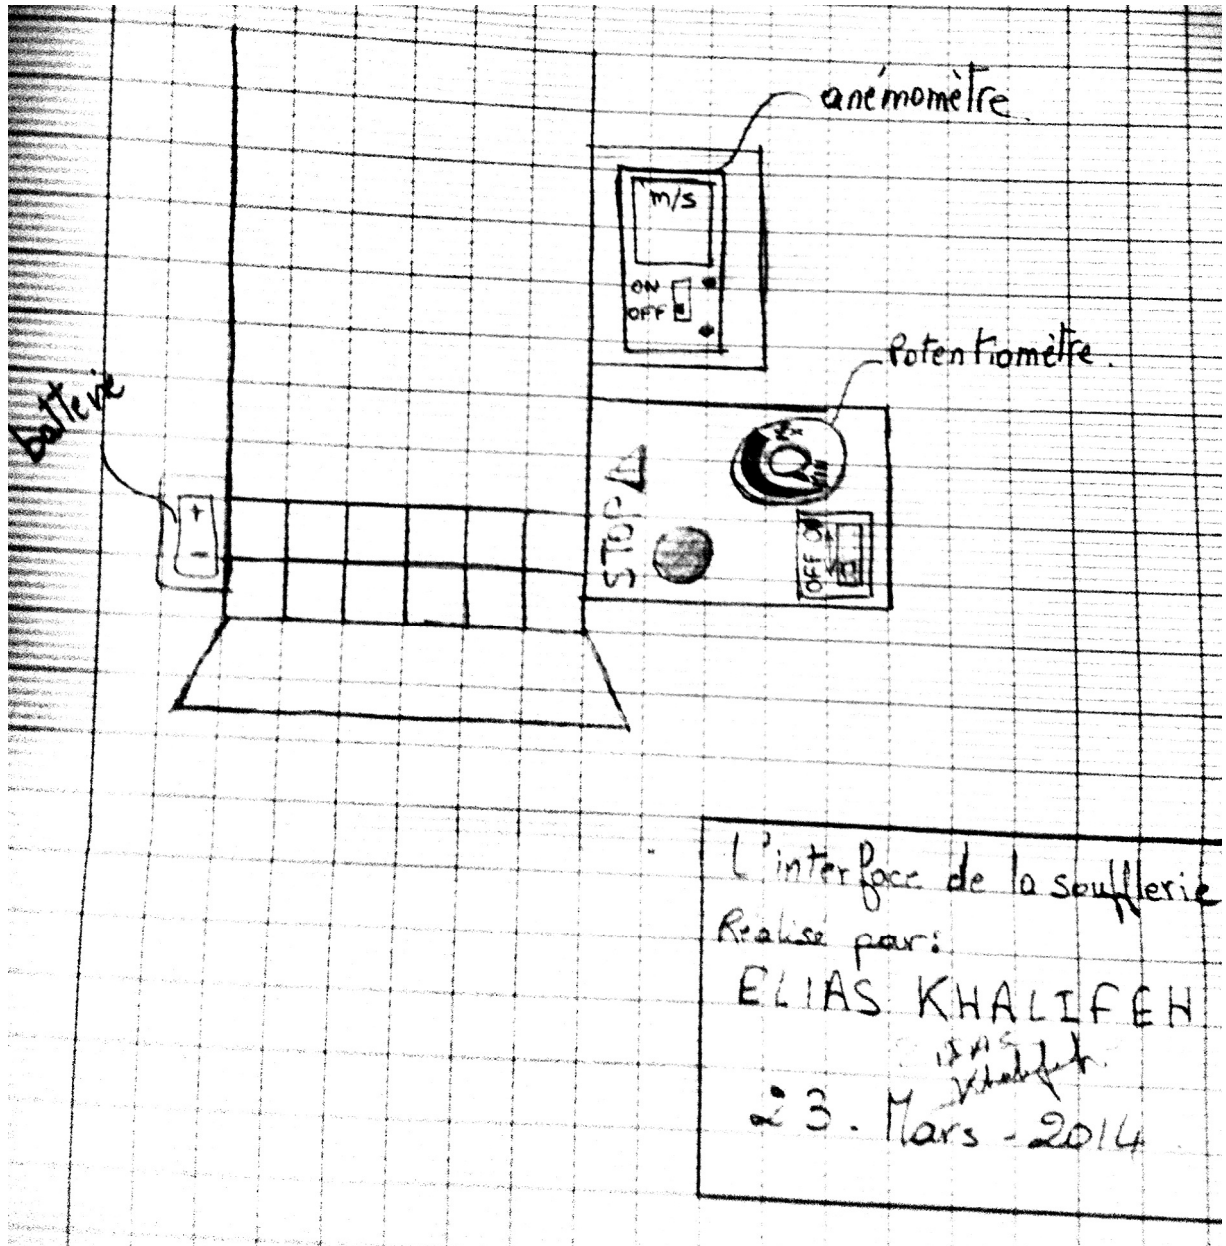 anémomètre
m/s
ON
OFF
Potentiomètre.
batterie
+
-
STOP
MIN
OFF
L'interface de la soufflerie
Réalisé par:
ELIAS KHALIFEH
23. Mars - 2014